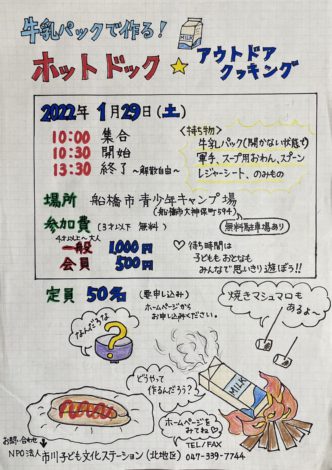 牛乳パックで作る!
MILK
ホットドック☆アウトドアクッキング
2022年 1月29日(土)
10:00 集合
10:30 開始
13:30 終了 ~解散自由~
<持ち物>
牛乳パック(開かない状態で)
軍手、スープ用おわん、スプーン
レジャーシート、のみもの
場所 船橋市青少年キャンプ場
(船橋市大神保町594)
無料駐車場あり
参加費(3才以下 無料)
4才以上~大人
一般 1,000円
会員 500円
♡ 待ち時間は
子どももおとなも
みんなで思いきり遊ぼう!!
定員 50名 (要申し込み)
ホームページから
お申し込みください。
焼きマシュマロも
あるよ~
なんだろな
?
どうやって
作るんだろう?
MILK
ホームページを
みてね♡
お問い合わせ
NPO法人 市川子ども文化ステーション(北地区)
TEL/FAX
047-339-7744